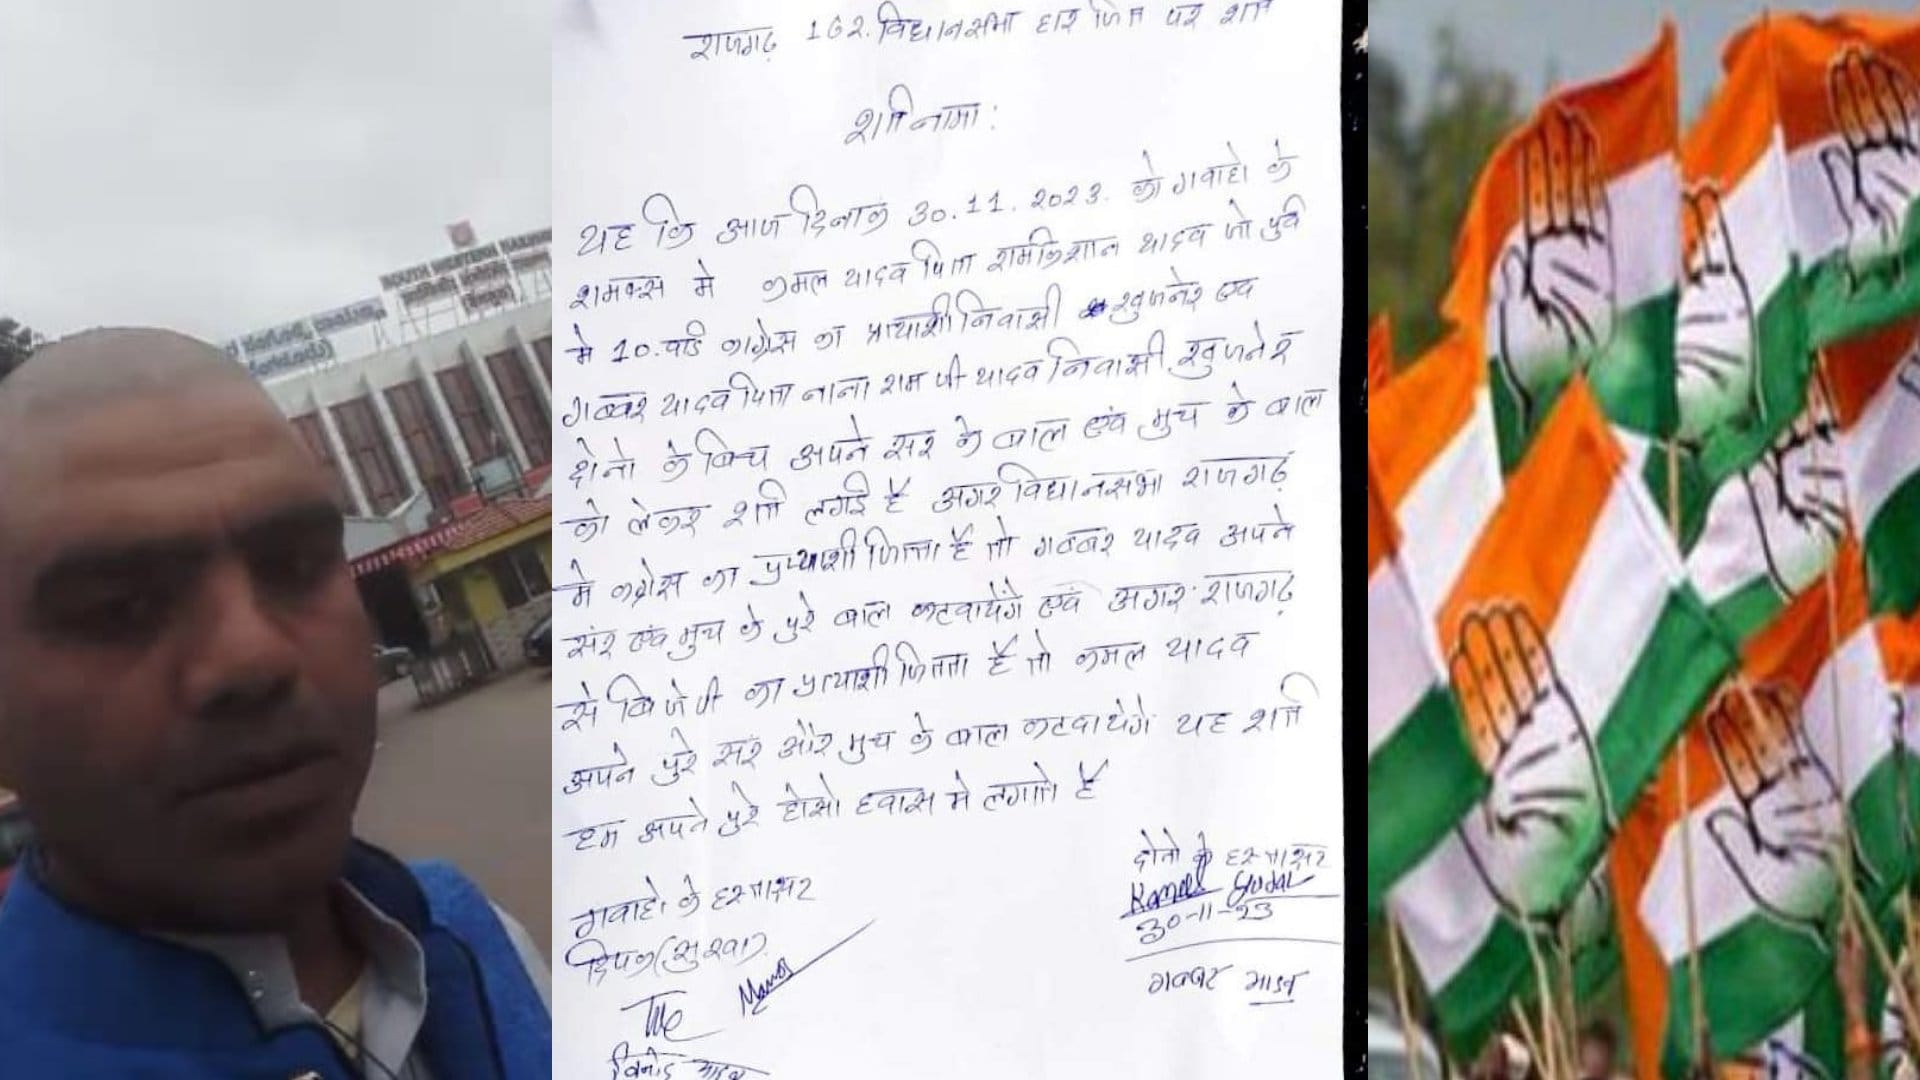 SOUTH WESTERN RAILWAY
राजगढ़ 162. विधानसभा हार जित पर शर्त
शर्तिनामा:
यह कि आज दिनांक 30.11.2023. को गवाहो के
समक्स मे कमल यादव पिता रामकिशान यादव जो पुर्व
मे 10. वार्ड काग्रेस का प्रत्याशी निवासी खुजनेर एव
गब्बर यादव पिता नाना राम जी यादव निवासी खुजनेर
दोनो के बिच अपने सर के बाल एवं मुच के बाल
को लेकर शर्त लगाई है अगर विधानसभा राजगढ़
मे कग्रेस का प्रत्याशी जितता है तो गब्बर यादव अपने
सर एवं मुच के पुरे बाल कटवायेंगे एवं अगर राजगढ़
से बिजेपी का प्रत्याशी जितता है तो कमल यादव
अपने पुरे सर और मुच के बाल कटवायेगे यह शर्त
हम अपने पुरे होसो हवास मे लगाते है
दोनो के हस्ताक्षर
Kamal Yadav
30-11-23
गब्बर यादव
गवाहो के हस्ताक्षर
दिपक
Manoj
विनोद यादव